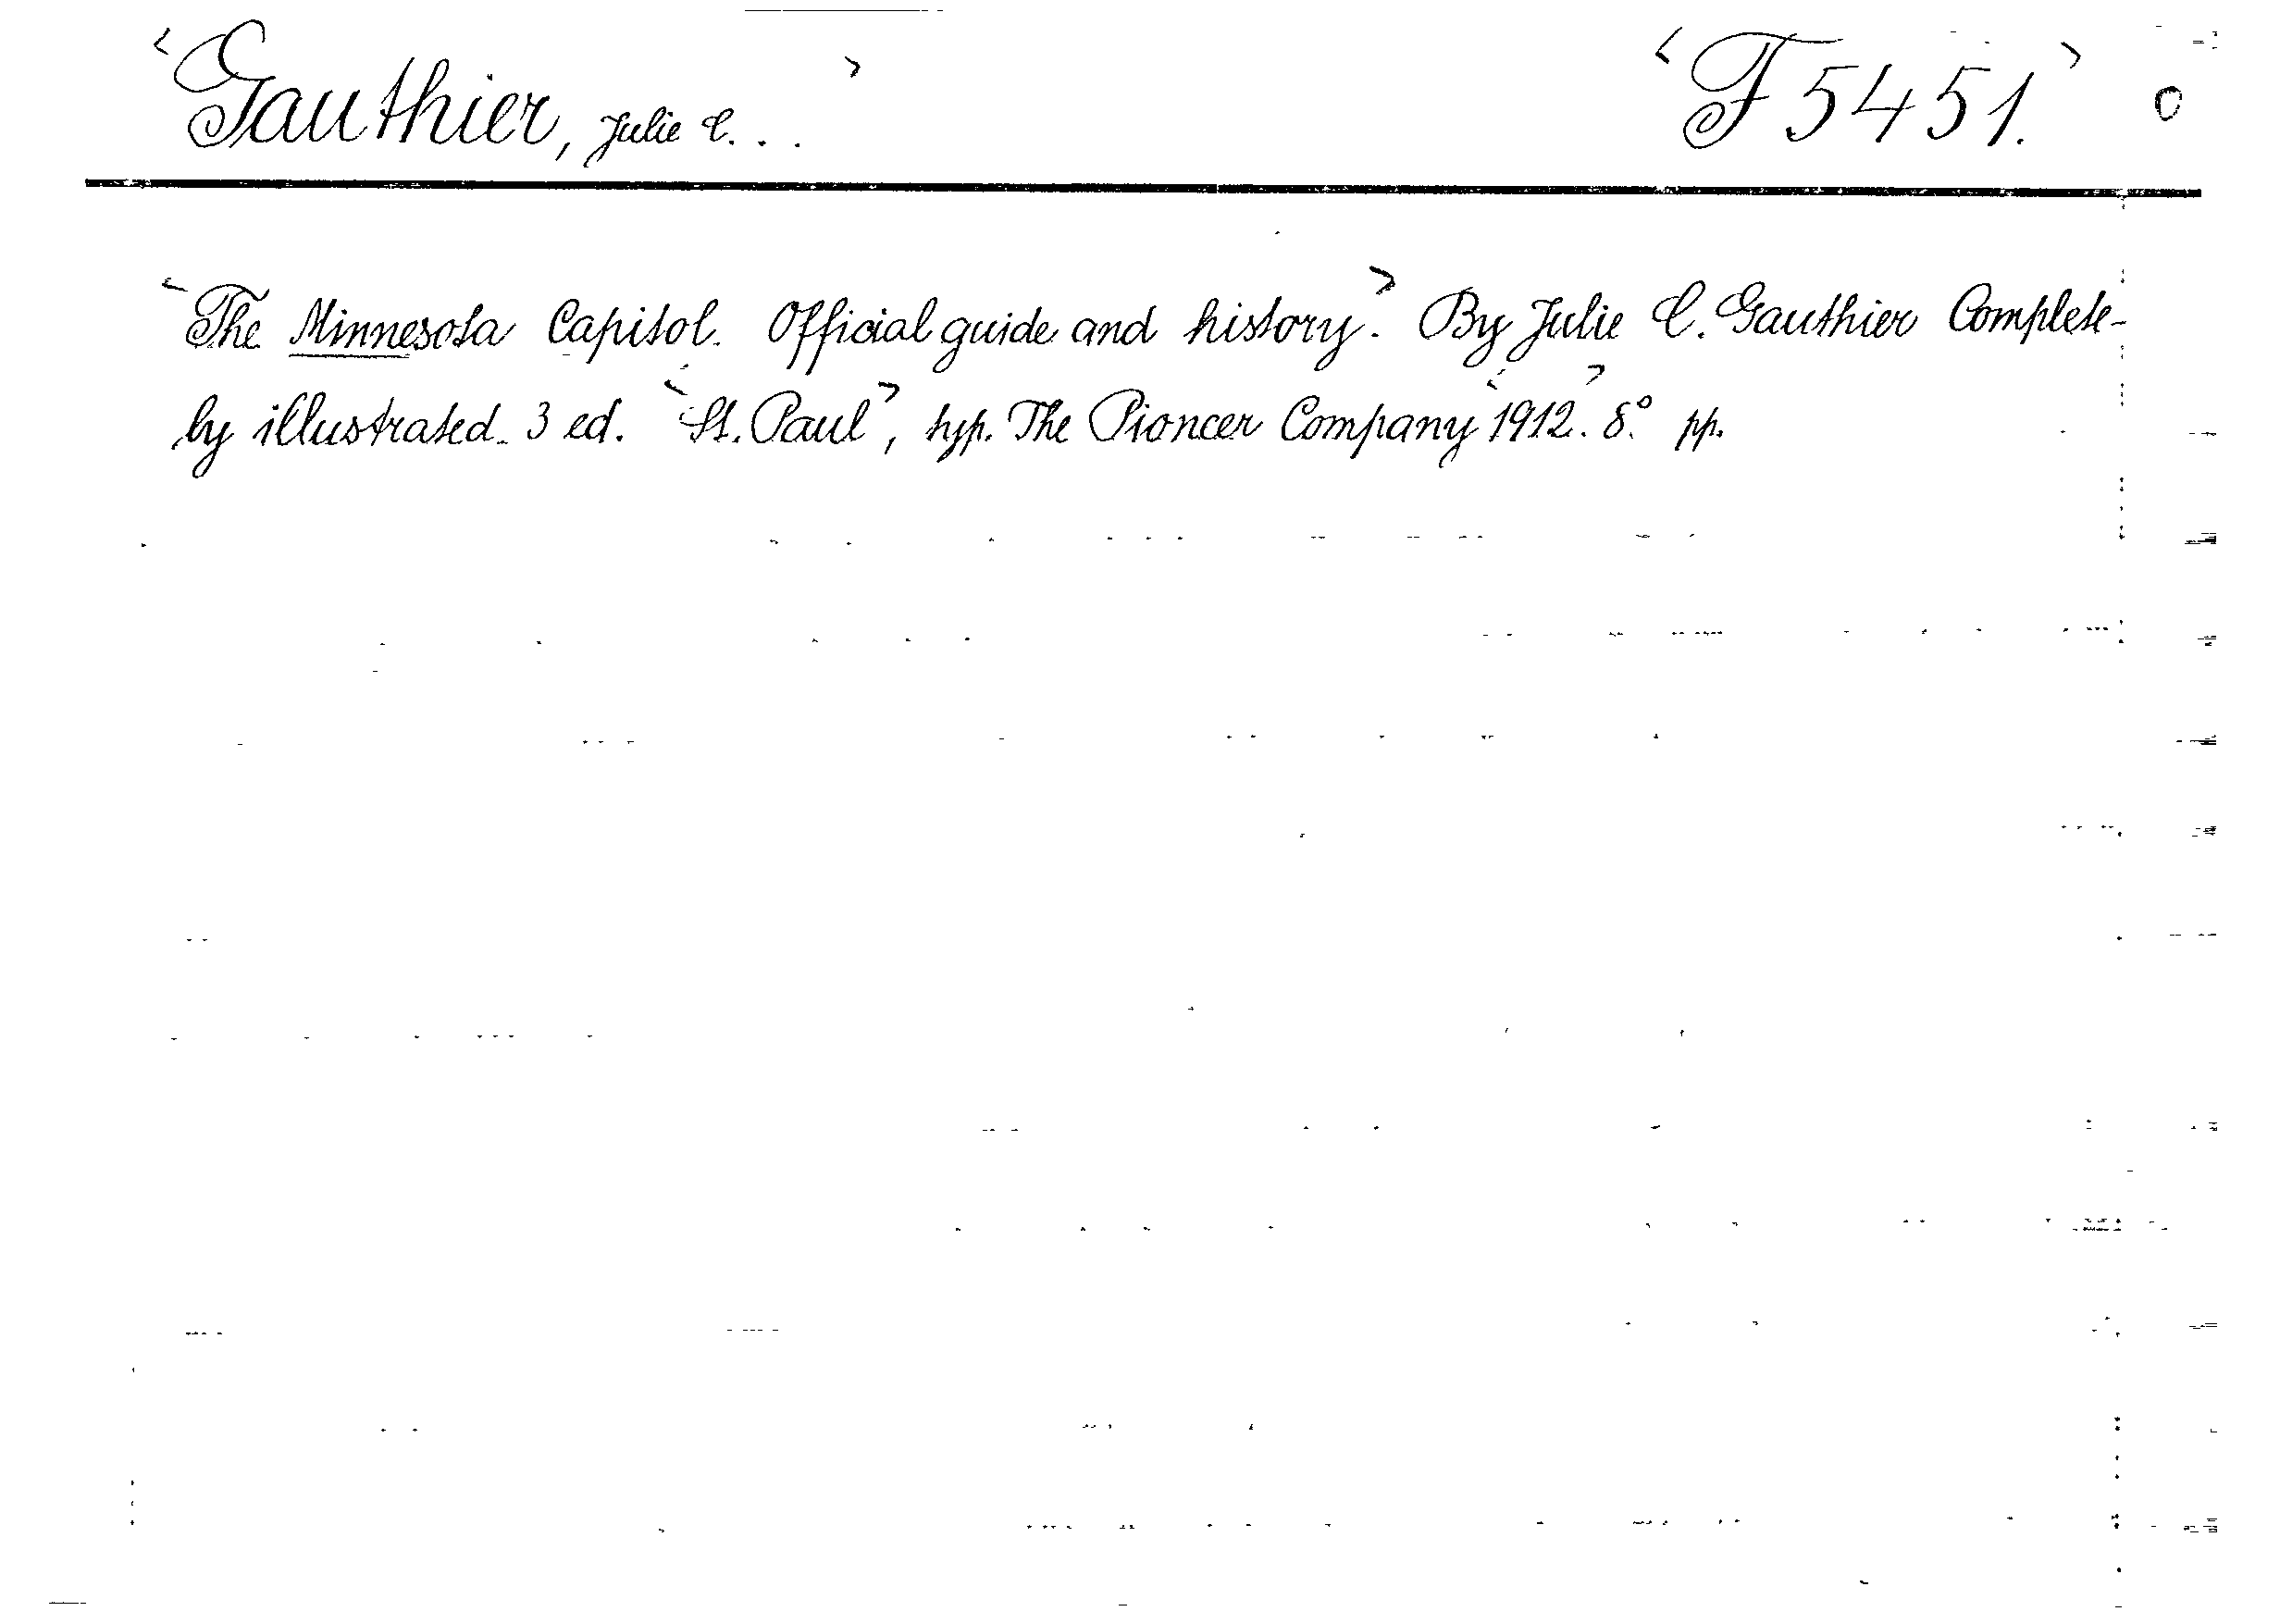 <Gauthier, Julie C...> <F 5451.> O
<The Minnesota Capitol. Official guide and history.> By Julie C. Gauthier Complete-
ly illustrated. 3 ed. <St. Paul>, typ. The Pioneer Company <1912>. 8.° pp.